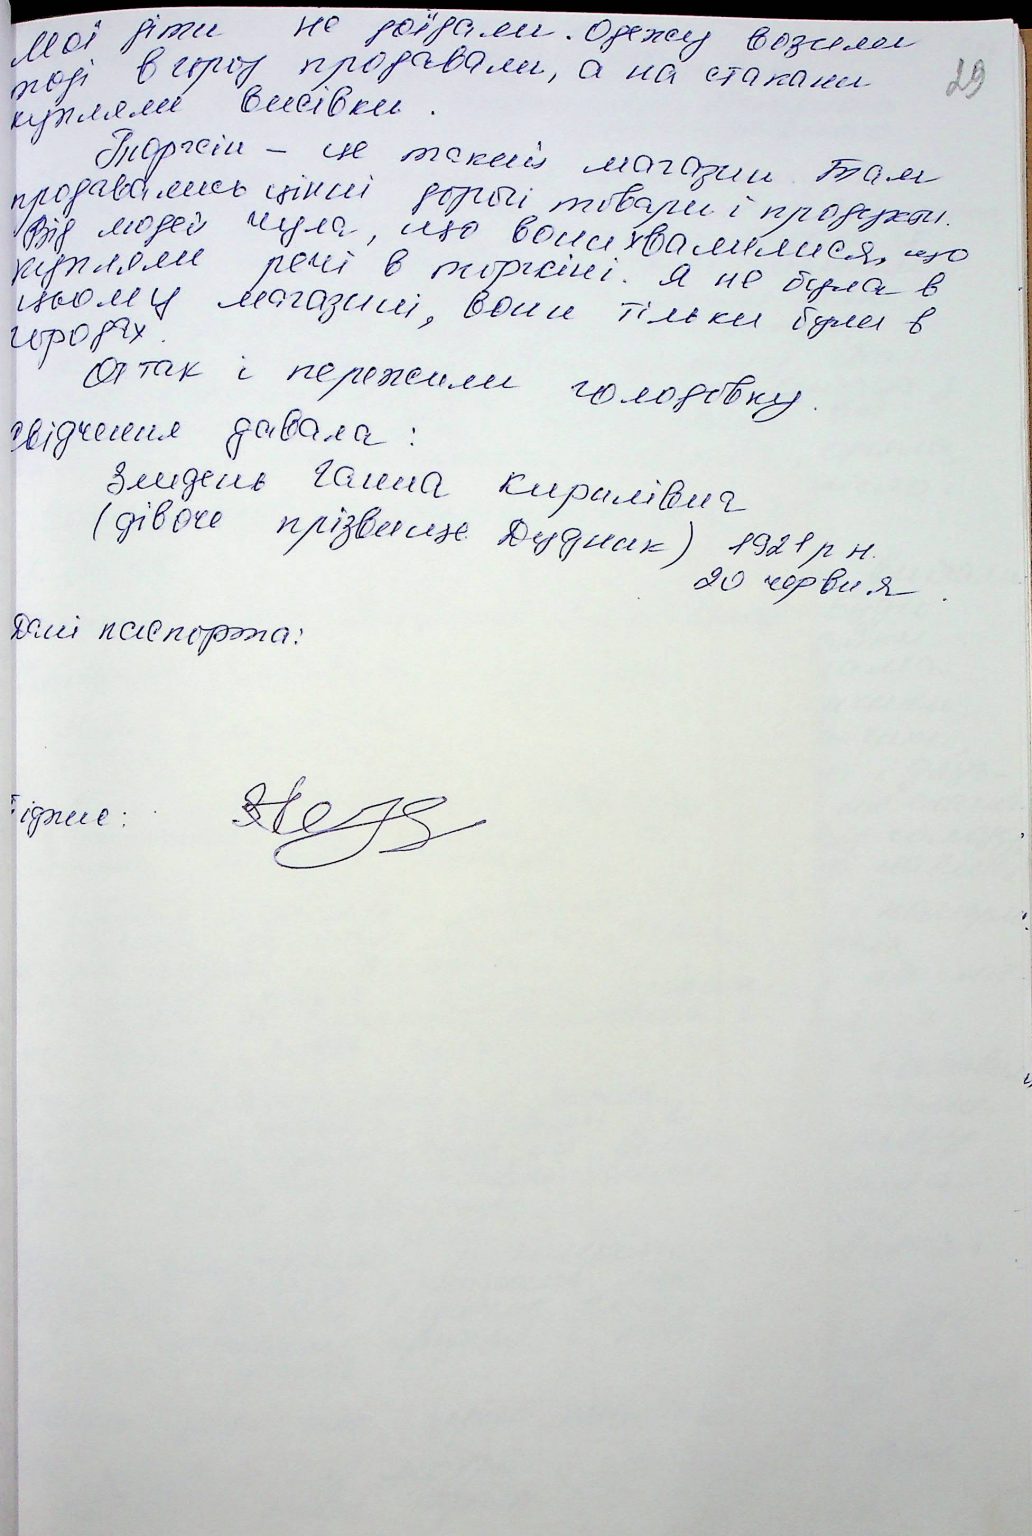 29
Мої діти не доїдали. Одежу возили
тоді в город продавали, а на стакани
купляли висівки.
Торгсін – це такий магазин. Там
продавались цінні дорогі товари і продукти.
Від людей чула, що вони хвалилися, що
купляли речі в торгсіні. Я не була в
цьому магазині, вони тільки були в
городах.
Отак і пережили голодовку.
свідчення давала:
Злидень Ганна Кирилівна
(дівоче прізвище Дудник) 1921 р н.
20 червня.
Дані паспорта:
Підпис: